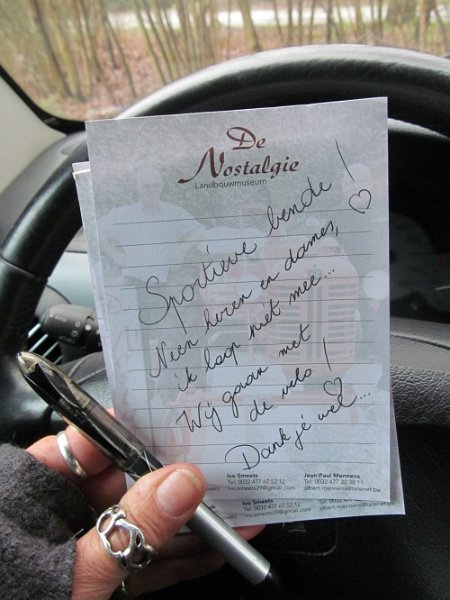 De
Nostalgie
Landbouwmuseum
Sportieve bende!
Neen heren en dames,
ik loop niet mee...
Wij gaan met
de velo!
Dank je wel...
Ivo Smeets
Tel: 0032 477 67 52 12
ivo.smeets29@gmail.com
Jean-Paul Mennens
Tel: 0032 477 22 38 11
albert.mennens@telenet.be
Ivo Smeets